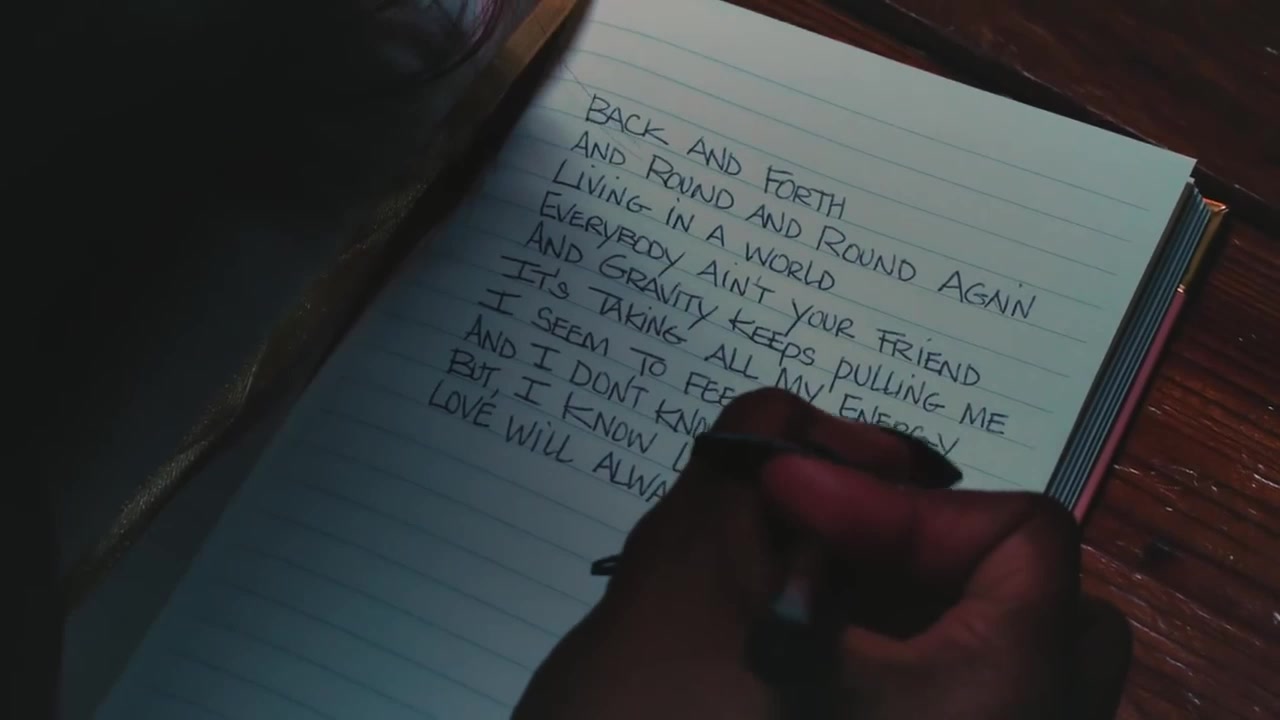 BACK AND FORTH
AND ROUND AND ROUND AGAIN
LIVING IN A WORLD
EVERYBODY AIN'T YOUR FRIEND
AND GRAVITY KEEPS PULLING ME
IT'S TAKING ALL MY ENERGY
I SEEM TO
AND I DONT
BUT, I KNOW
LOVE WILL